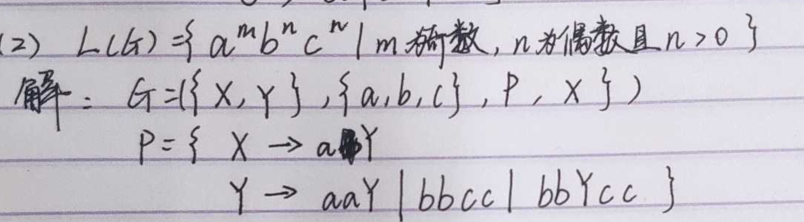 (2) L(G)={ a^m b^n c^n | m为奇数, n为偶数且n>0 }
解: G=({ X, Y }, {a, b, c}, P, X })
P={ X → aY
Y → aaY | bbcc | bbYcc }